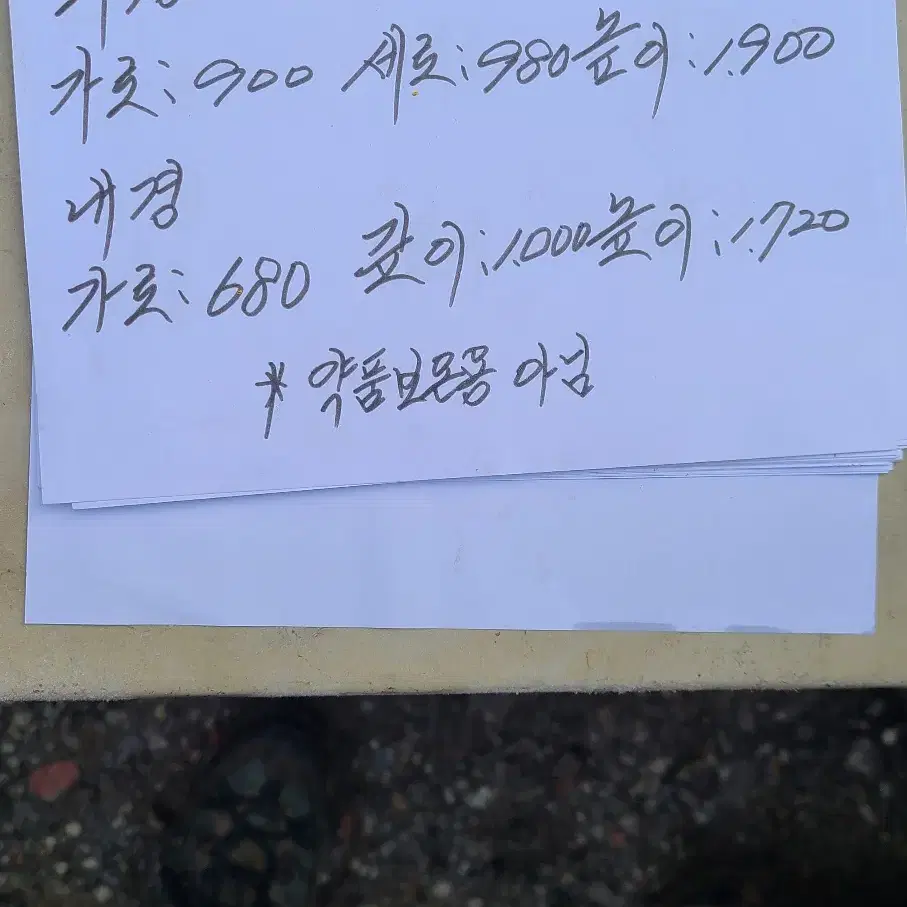 가로: 900 세로: 980 높이: 1.900
내경
가로: 680 깊이: 1.000 높이: 1.720
* 약품보온용 아님